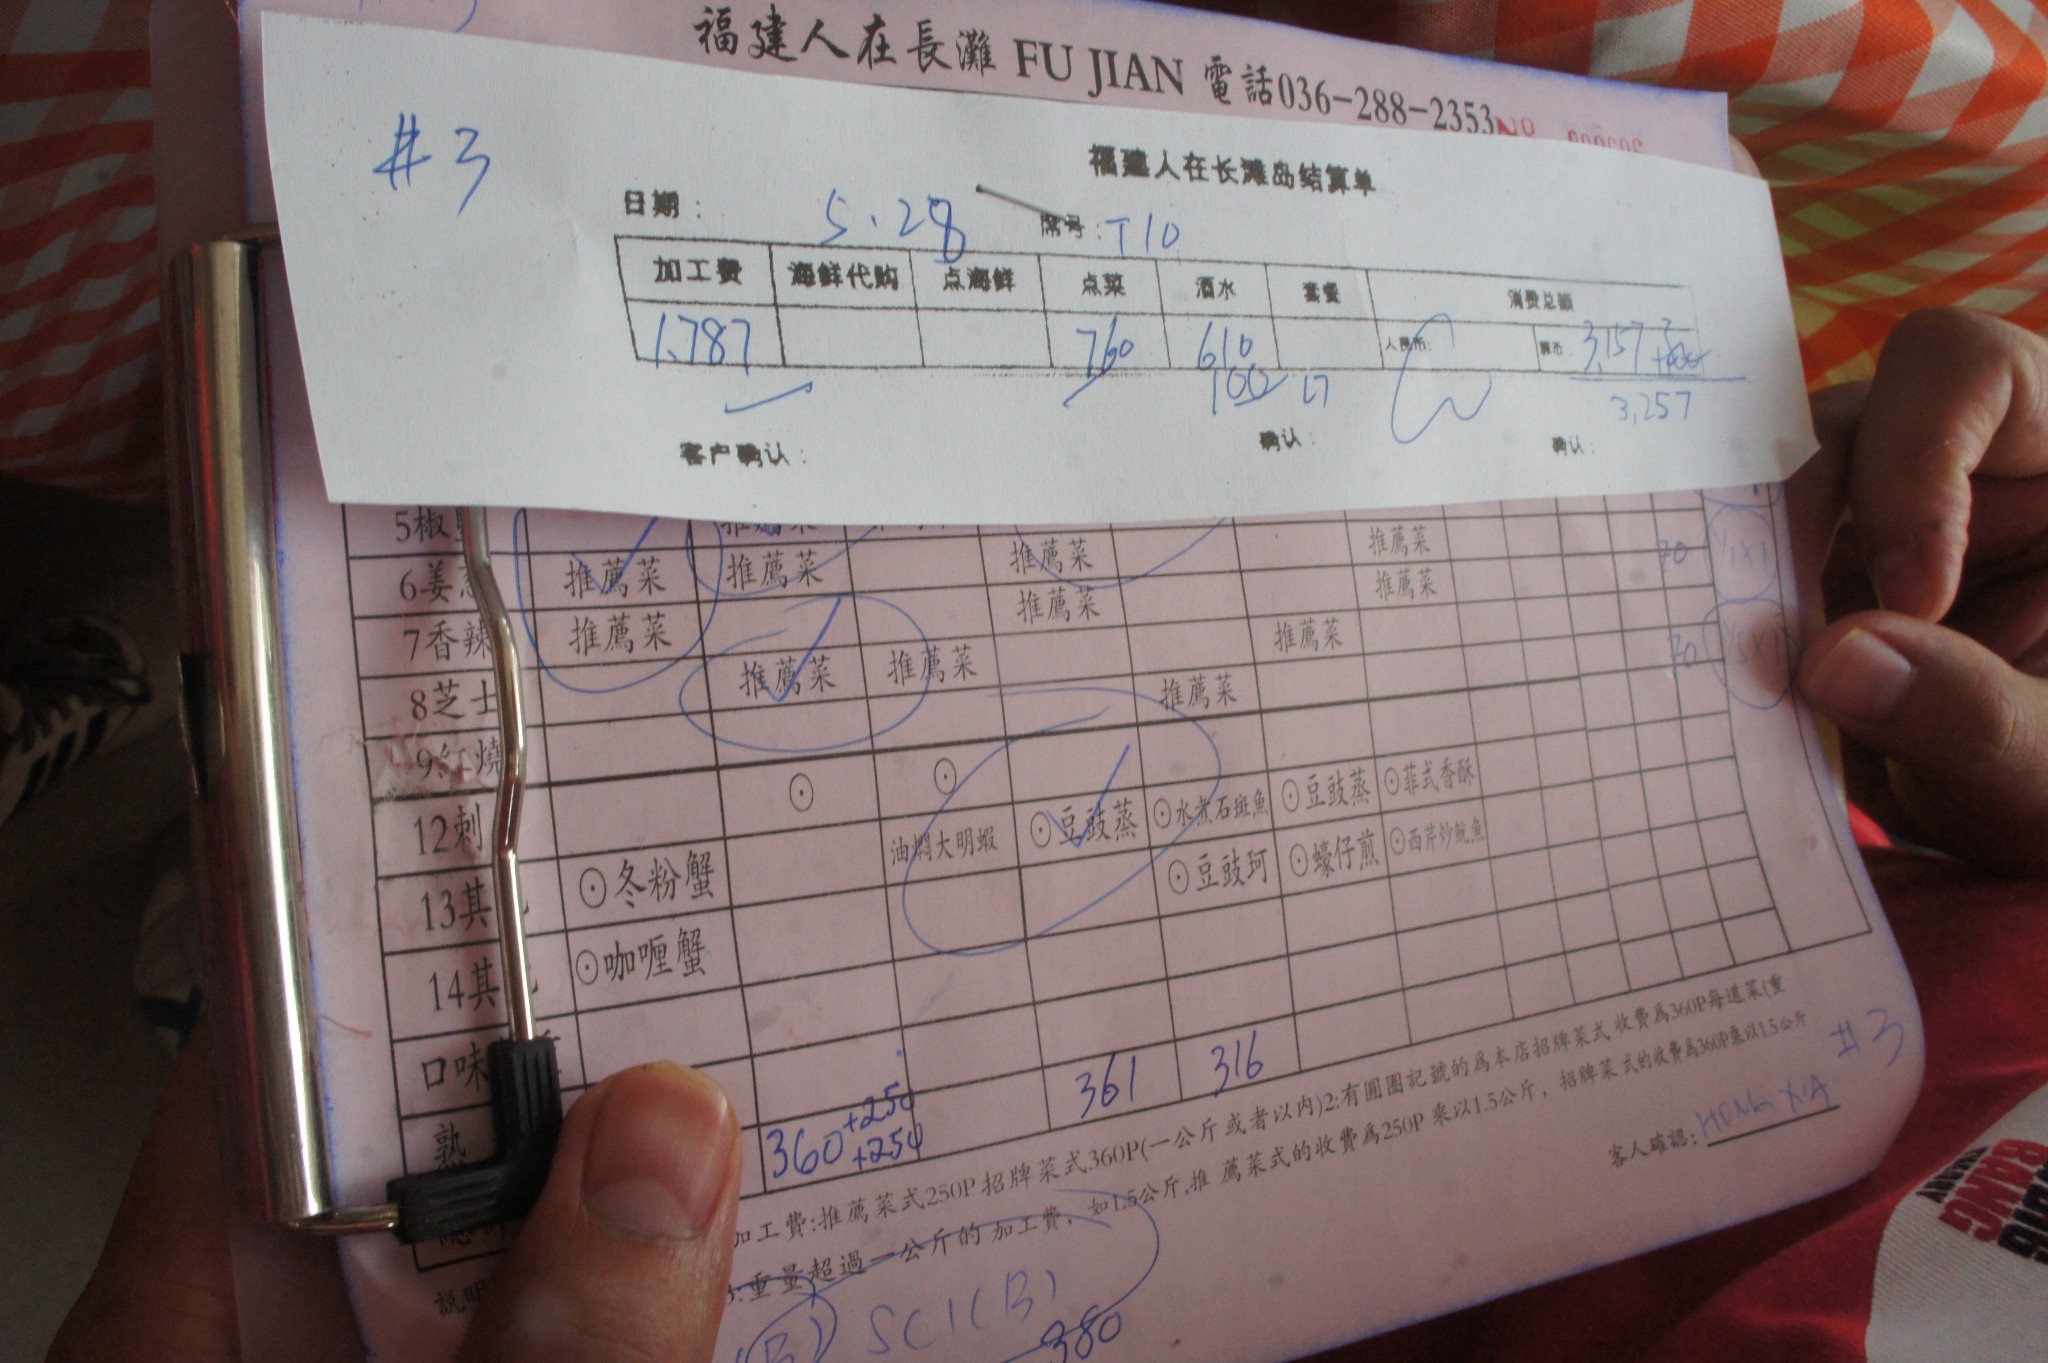 福建人在長灘 FU JIAN 電話036-288-2353
#3
福建人在长滩岛结算单
日期: 5.28 席号: T10
加工费 海鲜代购 点海鲜 点菜 酒水 套餐 消费总额
1,787 760 610 人民币: 菲币: 3,157
100
3,257
客户确认: 确认: 确认:
5椒
6姜 推薦菜 推薦菜 推薦菜 推薦菜 70
7香辣 推薦菜 推薦菜 推薦菜 推薦菜
8芝士 推薦菜 推薦菜 推薦菜 70
9 燒
12刺 ⊙ ⊙ ⊙豆豉蒸 ⊙水煮石斑魚 ⊙豆豉蒸 ⊙菲式香酥
13其 ⊙冬粉蟹 油燜大明蝦 ⊙豆豉珂 ⊙蠔仔煎 ⊙西芹炒魷魚
14其 ⊙咖喱蟹
口味
熟 360+250+250 361 316
說明
加工費:推薦菜式250P 招牌菜式360P(一公斤或者以内)2:有圓圈記號的為本店招牌菜式 收費為360P每道菜(重
3:重量超過一公斤的 加工費, 如1.5公斤,推 薦菜式的收費為250P 乘以1.5公斤, 招牌菜式的收費為360P乘以1.5公斤
#3
客人確認: HONG XIA
SC1(B)
380